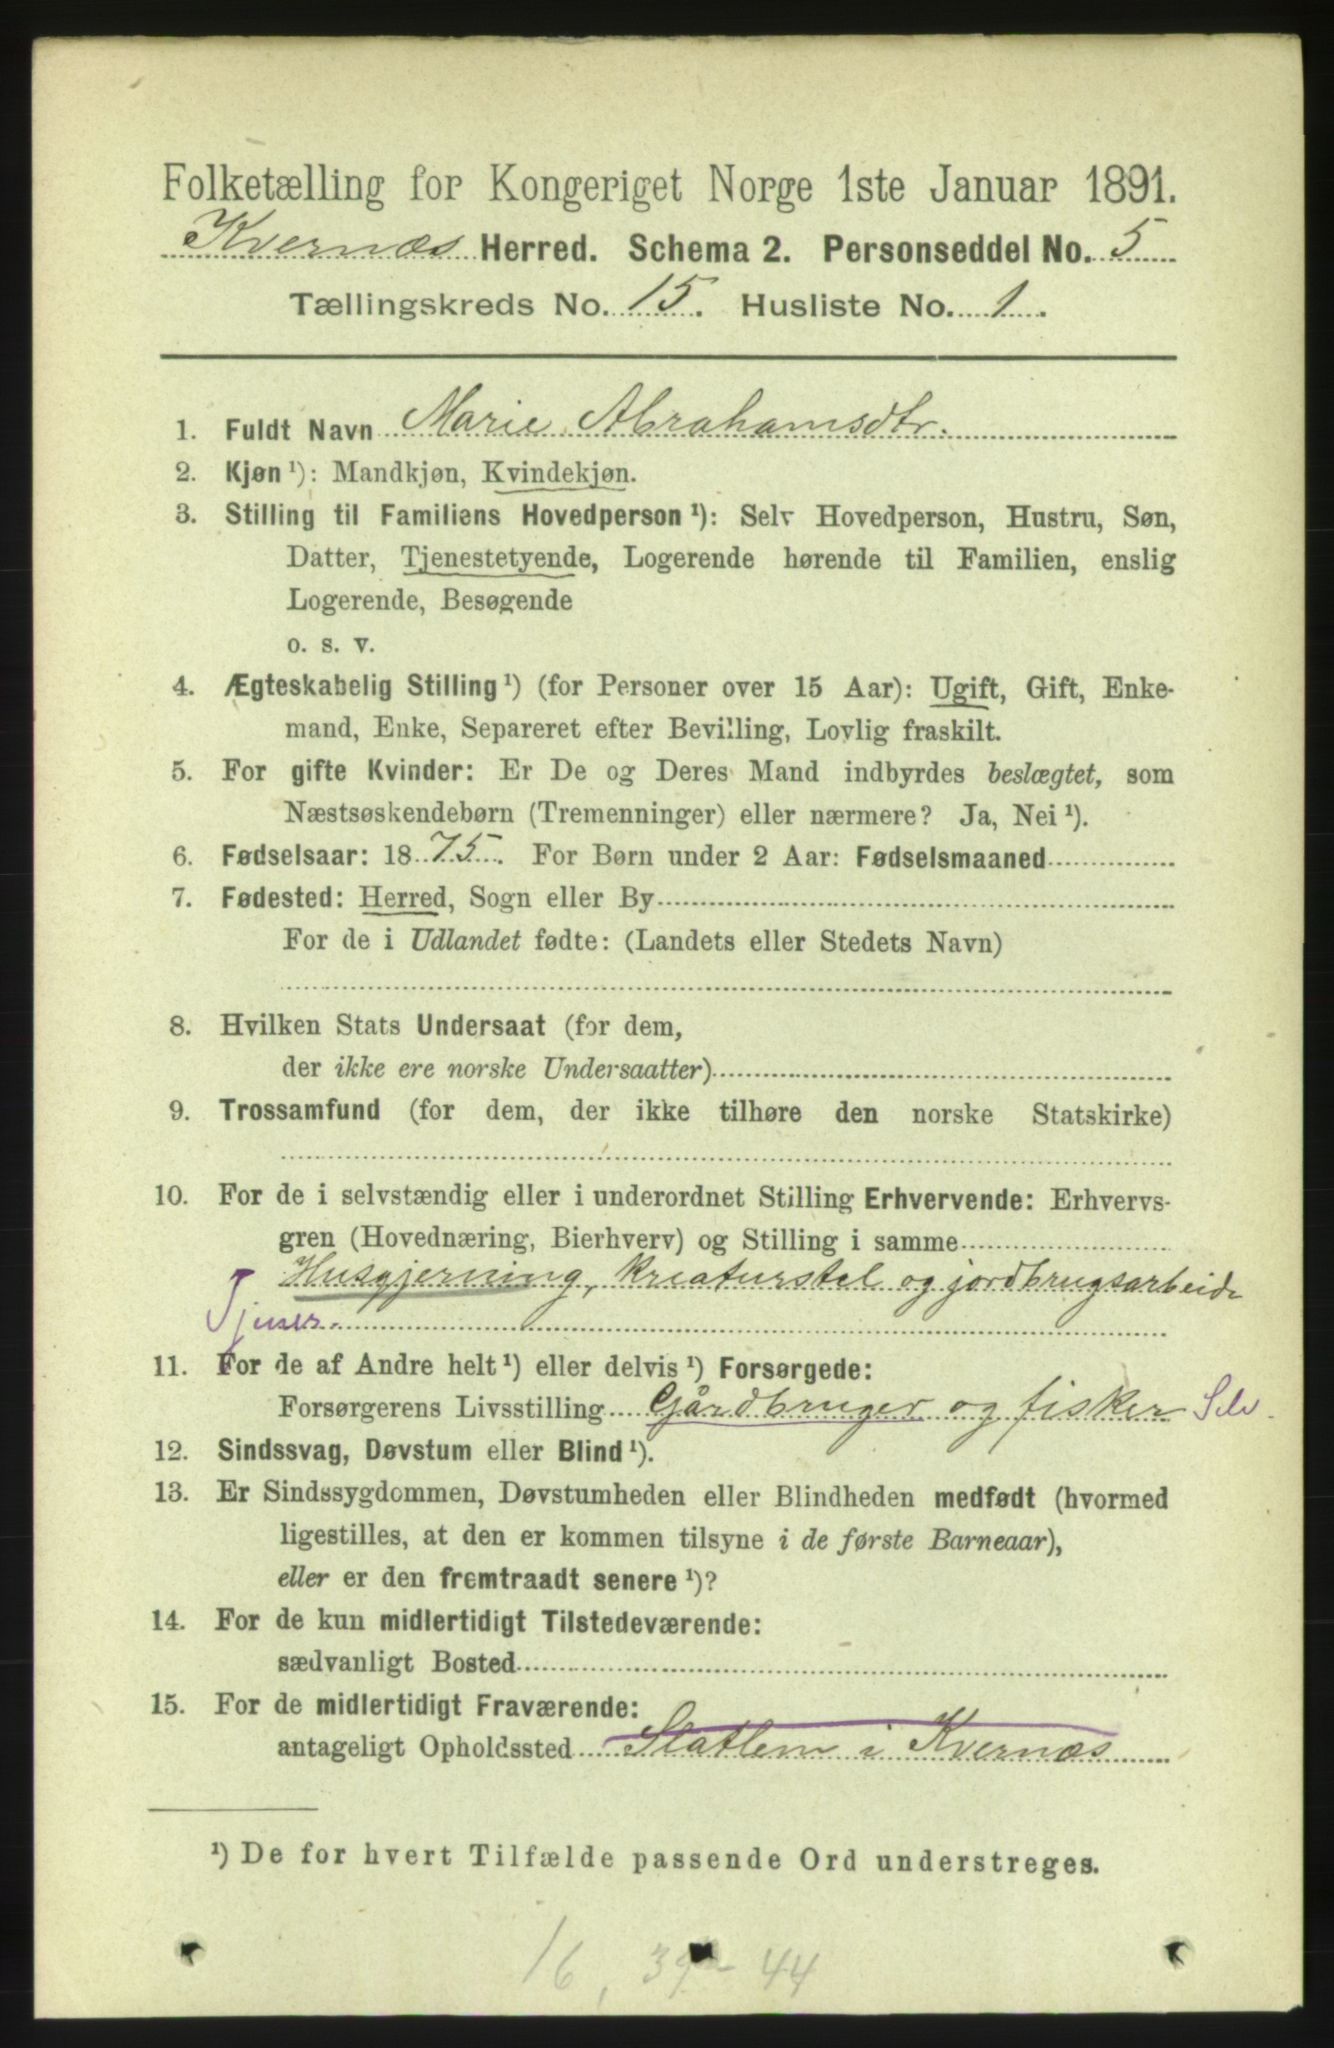 Folketælling for Kongeriget Norge 1ste Januar 1891.
Kvernæs Herred. Schema 2. Personseddel No. 5
Tællingskreds No. 15. Husliste No. 1.
1. Fuldt Navn Marie Abrahamsdtr.
2. Kjøn ¹): Mandkjøn, Kvindekjøn.
3. Stilling til Familiens Hovedperson ¹): Selv Hovedperson, Hustru, Søn,
Datter, Tjenestetyende, Logerende hørende til Familien, enslig
Logerende, Besøgende
o. s. v.
4. Ægteskabelig Stilling ¹) (for Personer over 15 Aar): Ugift, Gift, Enke-
mand, Enke, Separeret efter Bevilling, Lovlig fraskilt.
5. For gifte Kvinder: Er De og Deres Mand indbyrdes beslægtet, som
Næstsøskendebørn (Tremenninger) eller nærmere? Ja, Nei ¹).
6. Fødselsaar: 1875. For Børn under 2 Aar: Fødselsmaaned
7. Fødested: Herred, Sogn eller By
For de i Udlandet fødte: (Landets eller Stedets Navn)
8. Hvilken Stats Undersaat (for dem,
der ikke ere norske Undersaatter)
9. Trossamfund (for dem, der ikke tilhøre den norske Statskirke)
10. For de i selvstændig eller i underordnet Stilling Erhvervende: Erhvervs-
gren (Hovednæring, Bierhverv) og Stilling i samme
Husgjerning, kreaturstel og jordbrugsarbeide
Tjener
11. For de af Andre helt ¹) eller delvis ¹) Forsørgede:
Forsørgerens Livsstilling Gårdbruger og fisker Selv.
12. Sindssvag, Døvstum eller Blind ¹).
13. Er Sindssygdommen, Døvstumheden eller Blindheden medfødt (hvormed
ligestilles, at den er kommen tilsyne i de første Barneaar),
eller er den fremtraadt senere ¹)?
14. For de kun midlertidigt Tilstedeværende:
sædvanligt Bosted
15. For de midlertidigt Fraværende:
antageligt Opholdssted Slatlem i Kvernæs
¹) De for hvert Tilfælde passende Ord understreges.
16, 39 - 44